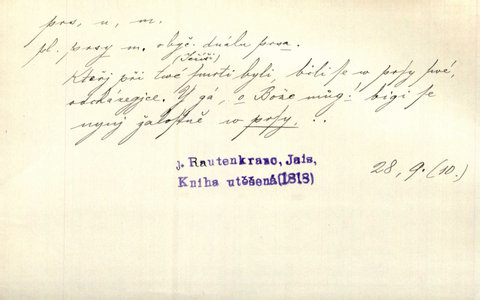 prs, u, m.
pl. prsy m. obyč. duálu prsa.
(Ježíši)
Kteřj při twé smrti byli, bili se w prsy swé,
odcházegjce. Y gá, o Bože můg! bigi se
nynj žalostně w prsy, ..
J. Rautenkranc, Jais,
Kniha utěšená(1818)
28, 9. (10.)